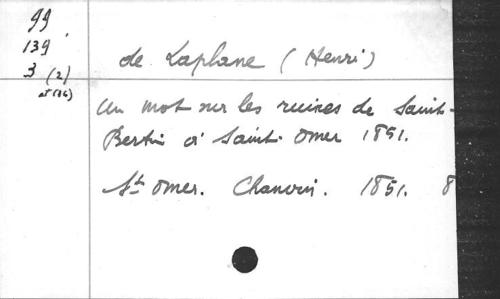 99
139
3 (2)
et (14)
de Laplane (Henri)
Un mot sur les ruines de Saint-
Bertin à Saint-Omer 1851.
St Omer. Chanvin. 1851. 8